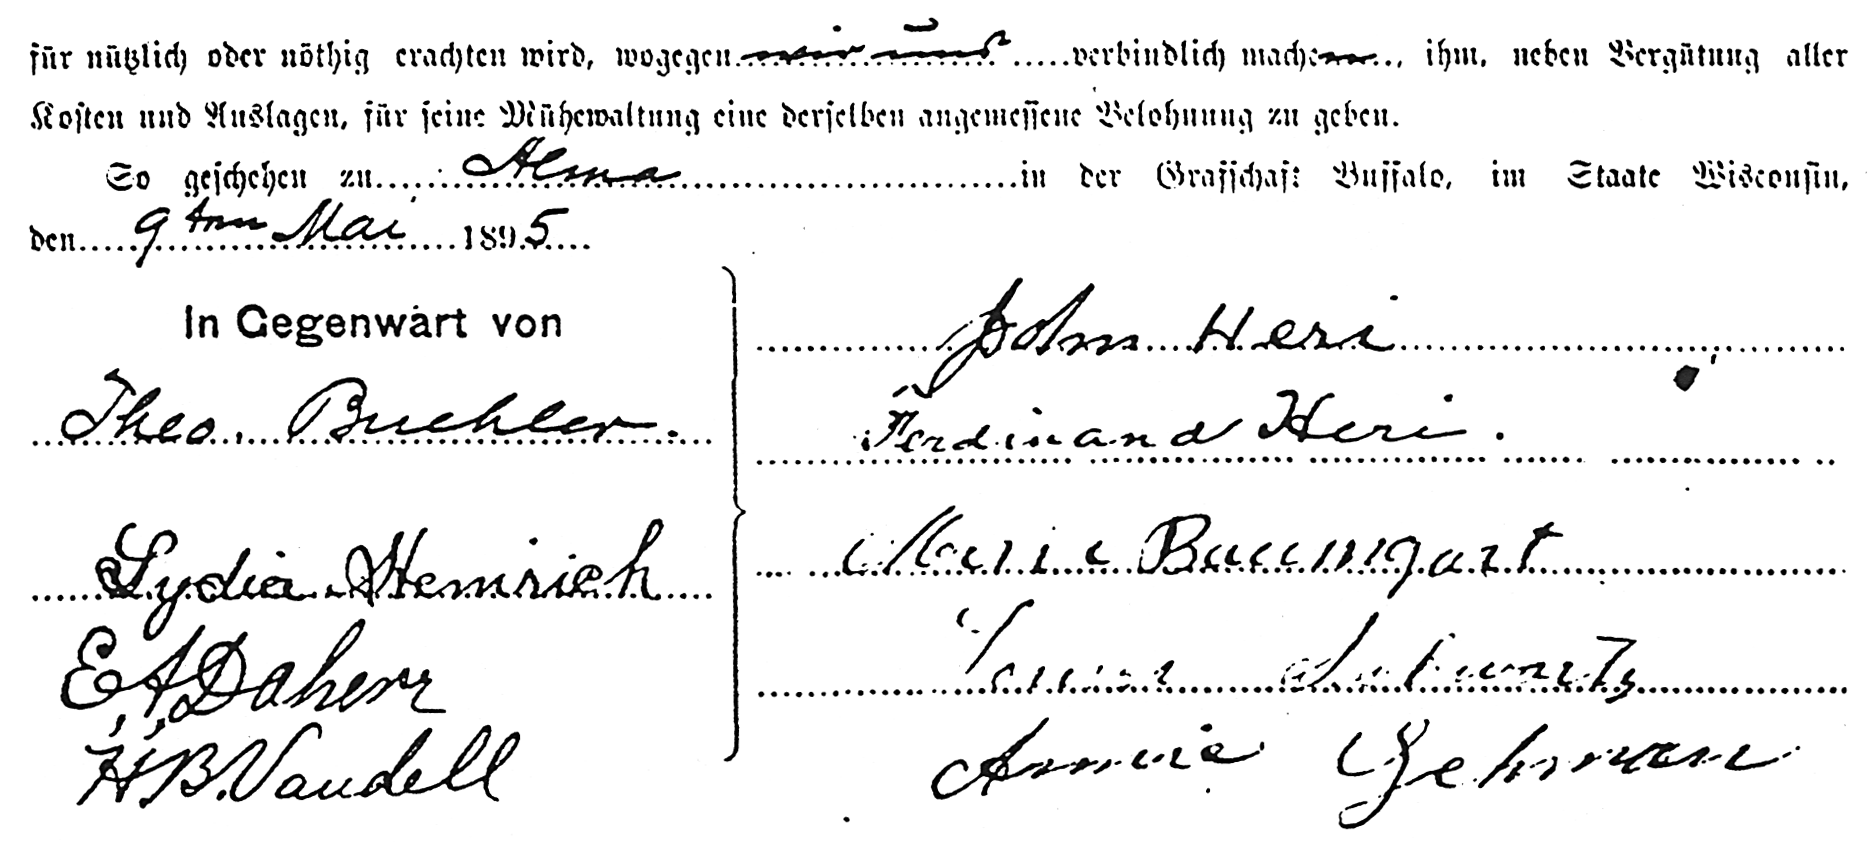 für nützlich oder nöthig erachten wird, wogegen wir uns verbindlich machen, ihm, neben Vergütung aller
Kosten und Auslagen, für seine Mühewaltung eine derselben angemessene Belohnung zu geben.
So geschehen zu Alma in der Grafschaft Buffalo, im Staate Wisconsin,
den 9ten Mai 1895
In Gegenwart von
John Heri
Theo. Buehler.
Ferdinand Heri.
Marie Baumgart
Lydia Heinrich
E. A. Dahery
H. B. Vandell
Annie Gehman